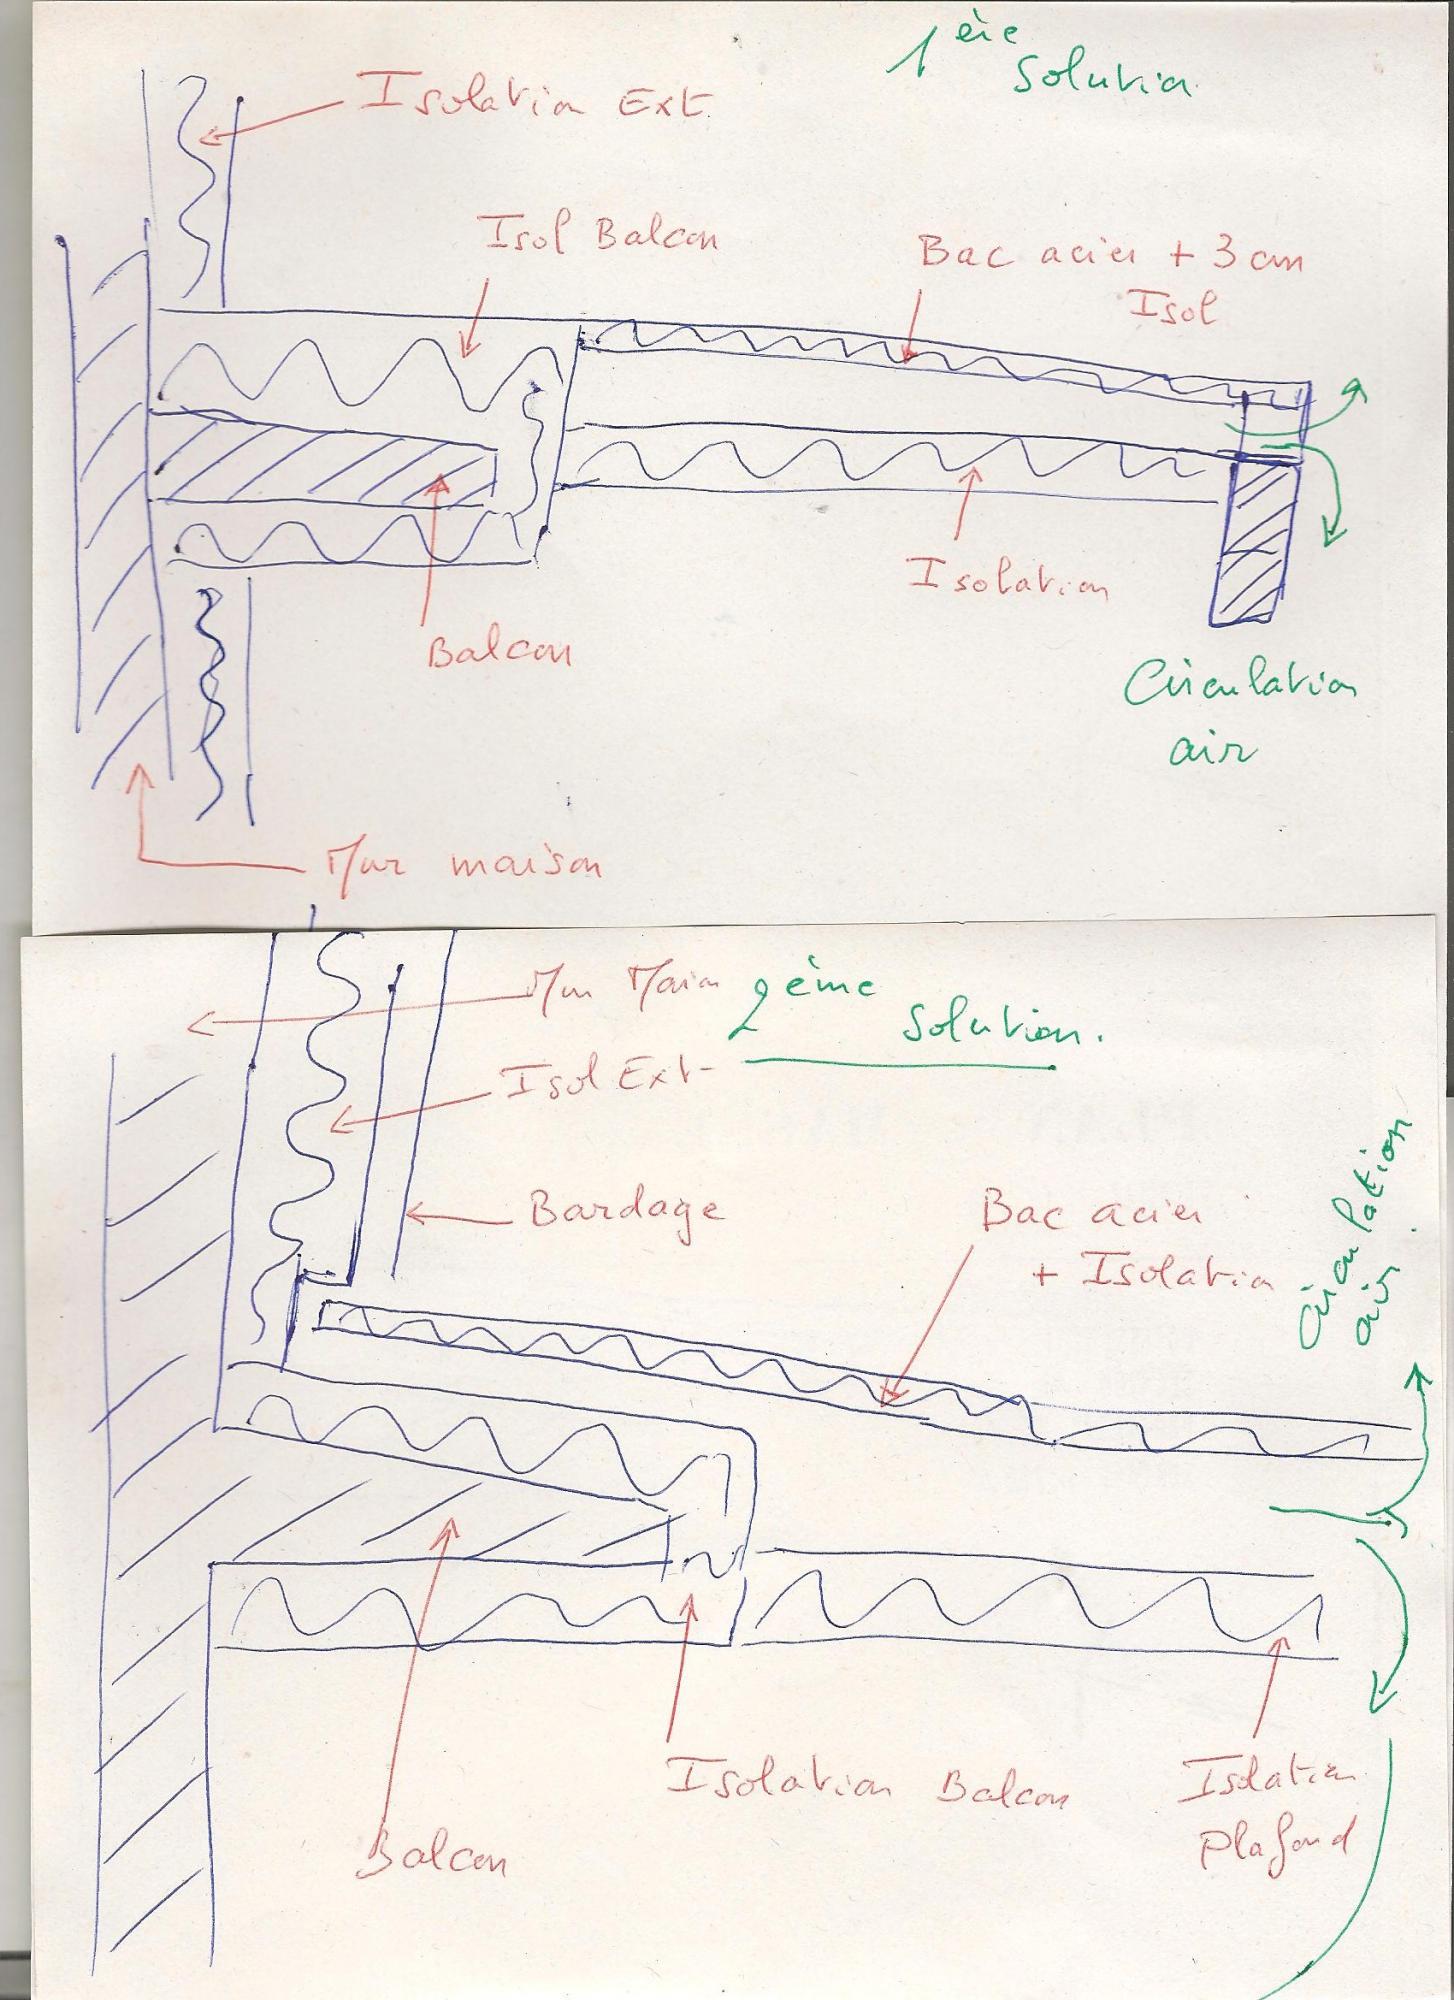 1ère
Solution
Isolation Ext
Isol Balcon
Bac acier + 3 cm
Isol
Isolation
Balcon
Circulation
air
Mur maison
Mur Maison
2ème
Solution.
Isol Ext
Bardage
Bac acier
+ Isolation
Circulation
air
Isolation Balcon
Isolation
Plafond
Balcon